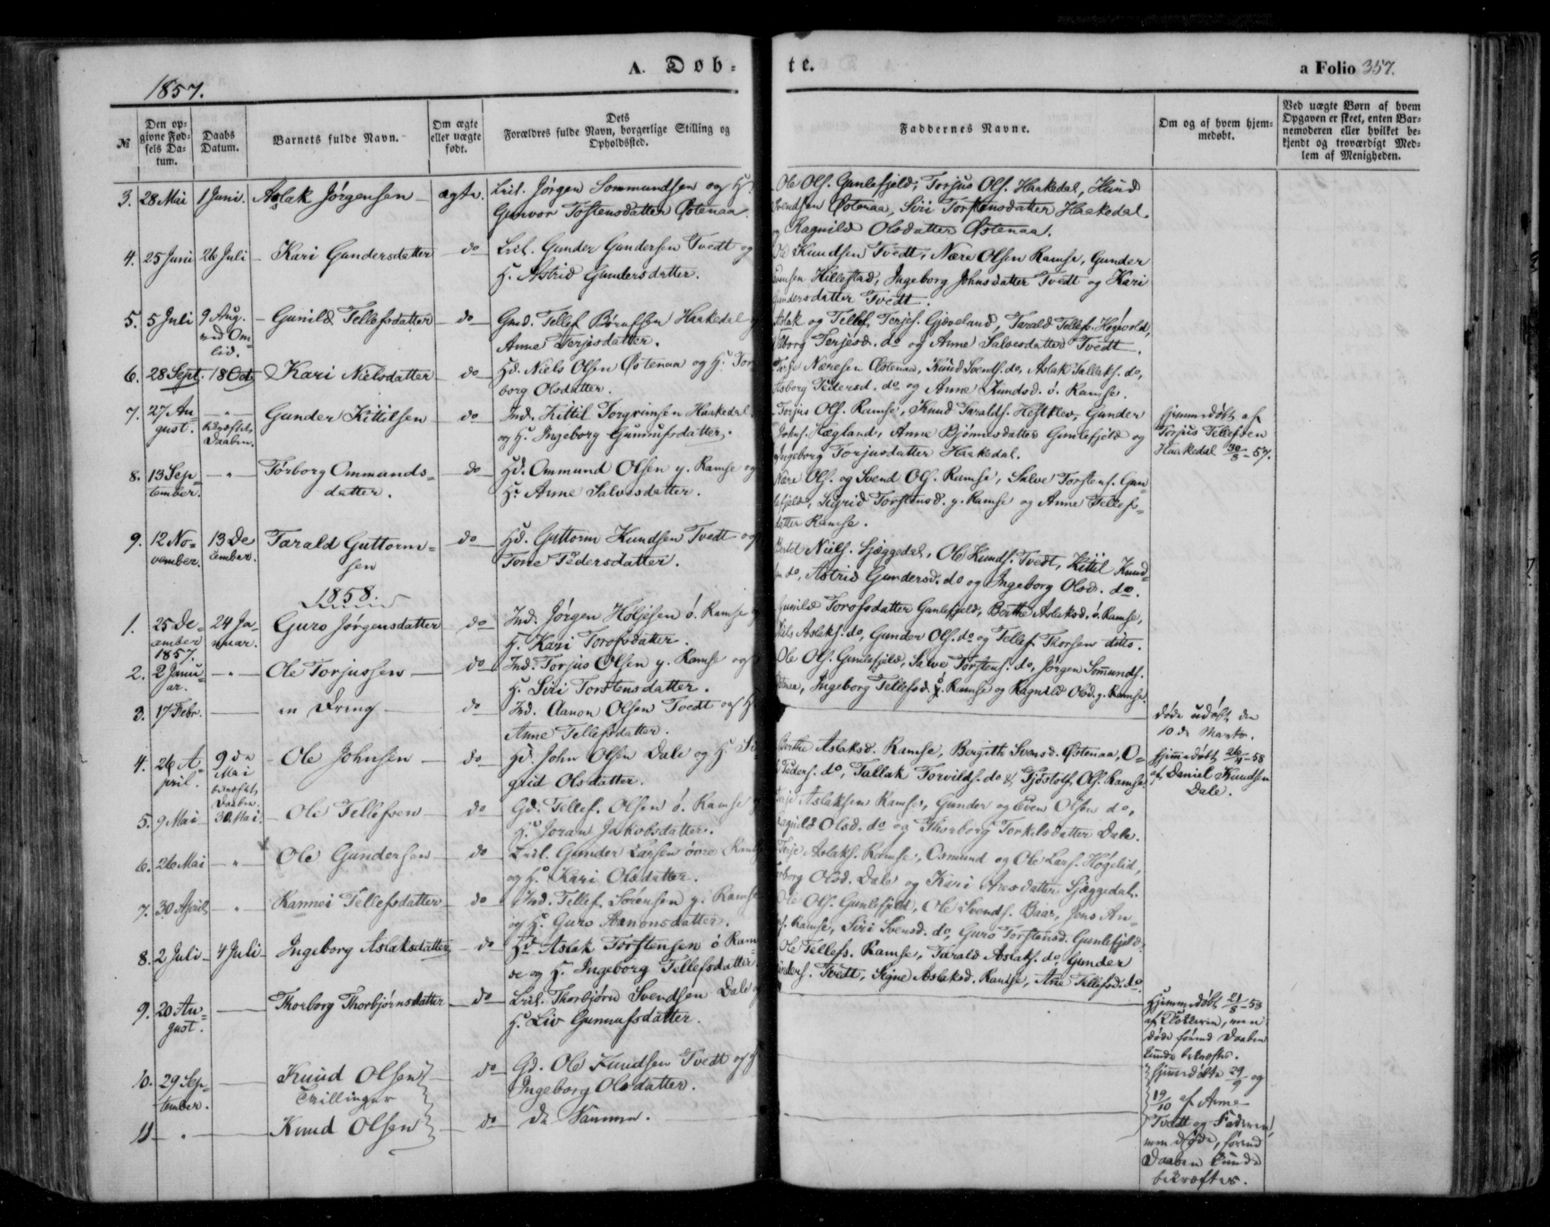 A. Døb-
te.
a Folio 357.
1857.
№
Den op-
givne Fød-
sels Da-
tum.
Daabs
Datum.
Barnets fulde Navn.
Om ægte
eller uægte
født.
Dets
Forældres fulde Navn, borgerlige Stilling og
Opholdssted.
Faddernes Navne.
Om og af hvem hjem-
medøbt.
Ved uægte Børn af hvem
Opgaven er skeet, enten Bar-
nemoderen eller hvilket be-
kjendt og troværdigt Med-
lem af Menigheden.
3. 28 Mai 1 Juni. Aslak Jørgensen ægte. Jørgen Sommundsen og H.
Gunvor Tostensdatter Østenaa.
Ole Ols. Gunlefjeld, Torjus Ols. Haakedal, Knud
Svendsen Østenaa, Siri Torstensdatter Haakedal.
Ragnild Olsdatter Østenaa.
4. 25 Juni 26 Juli Kari Gundersdatter do Gunder Gundersen Tvedt og
H. Astrid Gundersdatter.
Knudsen Tvedt, Nære Olsen Ramse, Gunder
Hillestad, Ingeborg Johnsdatter Tvedt og Kari
Gundersdatter Tvedt.
5. 5 Juli 9 Aug. Gunild Tellefsdatter do Tellef Haakedal
Anne Terjesdatter.
Aslak og Tellef Terjes. Gjøveland, Tarald Tellefs.
Terjesd. do og Anne Salvesdatter Tvedt.
6. 28 Sept. 18 Oct. Kari Nielsdatter do Hd. Niels Olsen Østenaa og H. Tor-
borg Olsdatter.
Næresen Østenaa, Knud Svends. do, Aslak Tallaks. do,
Pedersd. do og Anne Knudsd. ö. Ramse.
7. 27 Au-
gust. Gunder Kittilsen do Ind. Kittil Torgrimsen Haakedal
og H. Ingeborg Gunnufsdatter.
Torjus Ols. Ramse, Knud Taralds. Heftkler, Gunder
Hægland, Anne Bjørnusdatter Gunlefjeld og
Ingeborg Torjusdatter Haakedal.
Hjemmedøbt af
Torjus Tellefsen
Haakedal 30/8 57.
8. 13 Sep-
tember. Torborg Ommunds-
datter. do Hd. Ommund Olsen y. Ramse og
H. Anne Salvesdatter.
Nære Ols. og Svend Ols. Ramse, Salve Torstens. Gun-
lefjeld, Sigrid Torstensd. y. Ramse og Anne Tellefs-
datter Ramse.
9. 12 No-
vember. 13 De-
cember. Tarald Guttorm-
sen do Hd. Guttorm Knudsen Tvedt og
Tone Pedersdatter.
Niels. Sjæggedal, Ole Knuds. Tvedt, Kittil Knud-
sen do, Astrid Gundersd. do og Ingeborg Olsd. do.
1858.
1. 25 De-
cember
1857. 24 Ja-
nuar. Guro Jørgensdatter do Ind. Jørgen Holjesen ö. Ramse
H. Kari Torofsdatter.
Gunild Torofsdatter Gunlefjeld, Berthe Aslaksd. ö. Ramse,
Niels Aslaks. do, Gunder Ols. do og Tellef Thorsen ditto.
2. 2 Janu-
ar. Ole Torjussen do Ind. Torjus Olsen y. Ramse og
H. Siri Torstensdatter.
Ole Ols. Gunlefjeld, Salve Torstens. do, Jørgen Sommunds.
Østenaa, Ingeborg Tellefsd. ö. Ramse og Ragnild Olsd. y. Ramse.
3. 17 Febr. en Dreng do Ind. Aanon Olsen Tvedt og H.
Anne Tellefsdatter.
døde udøbt den
10de Marts.
4. 26 A-
pril. 9de
Mai Ole Johnsen do Hd. John Olsen Dale og H. Si-
grid Olsdatter.
Berthe Aslaksd. Ramse, Bergith Svensd. Østenaa, O-
le Peders. do, Tallak Torvilds. do & Gjøstolf Ols. Ramse.
Hjemmedøbt 26/4 58
af Daniel Knudsen
Dale.
5. 9 Mai 30 Mai. Ole Tellefsen do Gd. Tellef Olsen ö. Ramse
H. Joran Jakobsdatter.
Aslaksen Ramse, Gunder og Even Olsen do,
Ragnild Olsd. do og Thorborg Torkelsdatter Dale.
6. 26 Mai Ole Gundersen do Gunder Larsen övre Ramse
og H. Kari Olsdatter.
Terje Aslaks. Ramse, Osmund og Ole Lars. Høgelid,
Olsd. Dale og Kari Aresdatter Sjæggedal.
7. 30 April Rannei Tellefsdatter do Ind. Tellef Sørensen y. Ramse
og H. Guro Aanonsdatter.
Ole Ols. Gunlefjeld, Ole Svends. Baas, Jens An-
Ramse, Siri Svensd. do, Guro Torstensd. Gunlefjeld.
8. 2 Juli 4 Juli Ingeborg Aslaksdatter do Hd. Aslak Torstensen ö Ram-
se og H. Ingeborg Tellefsdatter
Ole Tellefs. Ramse, Tarald Aslaks. do, Gunder
Tvedt, Signe Aslaksd. Ramse, Ane Tellefsd. do.
9. 20 Au-
gust. Thorborg Thorbjørnsdatter do Thorbjørn Svendsen Dale
H. Liv Gunnufsdatter.
Hjemmedøbt 21/8 58
af Fatteren, men
døde førend Daaben
kunde bekræftes.
10. 29 Sep-
tember. Knud Olsen
Tvillinger do Gd. Ole Knudsen Tvedt og H
Ingeborg Olsdatter.
Hjemmedøbte 29/9 og
19/10 af Arne
Tvedt og Faderen,
men døde, førend
Daaben kunde
bekræftes.
11 Knud Olsen do De Samme.